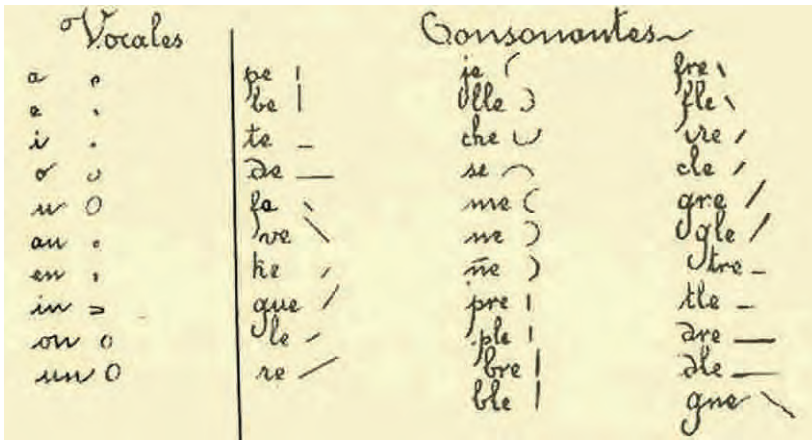 Vocales
a
e
i
o
u
an
en
in
on
un
Consonantes
pe
be
te
de
fa
ve
ke
gue
le
re
je
lle
che
se
me
ne
ñe
pre
ple
bre
ble
fre
fle
cle
gre
gle
tre
tle
dre
dle
gne